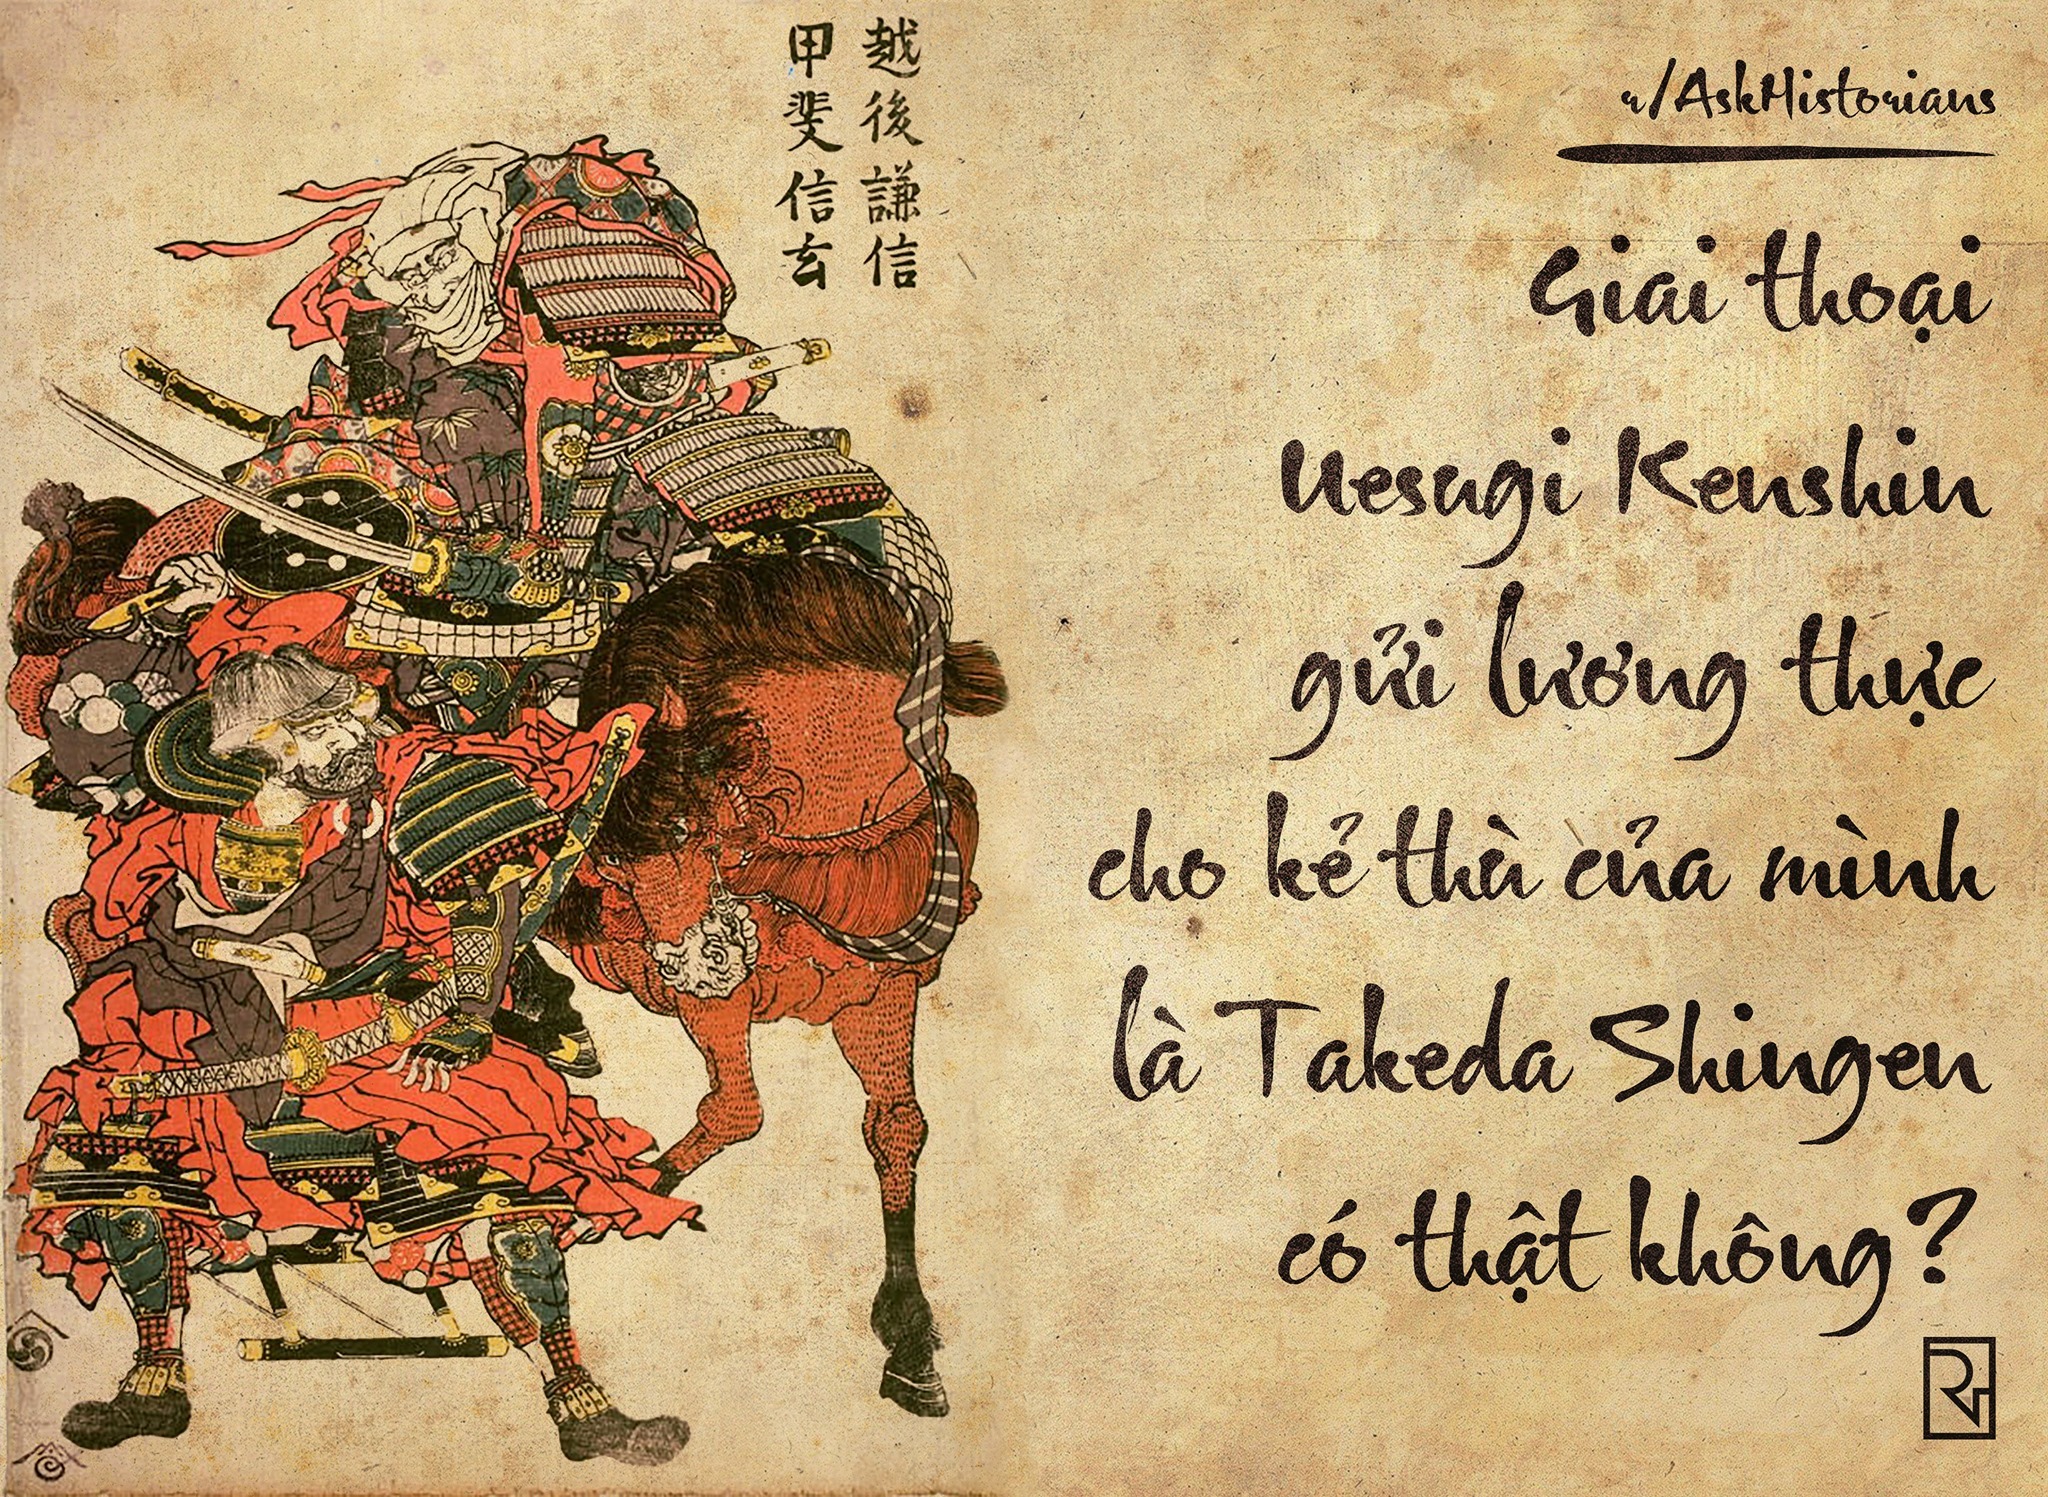 越後謙信
甲斐信玄
r/AskHistorians
Giai thoại
Uesugi Kenshin
gửi lương thực
cho kẻ thù của mình
là Takeda Shingen
có thật không?